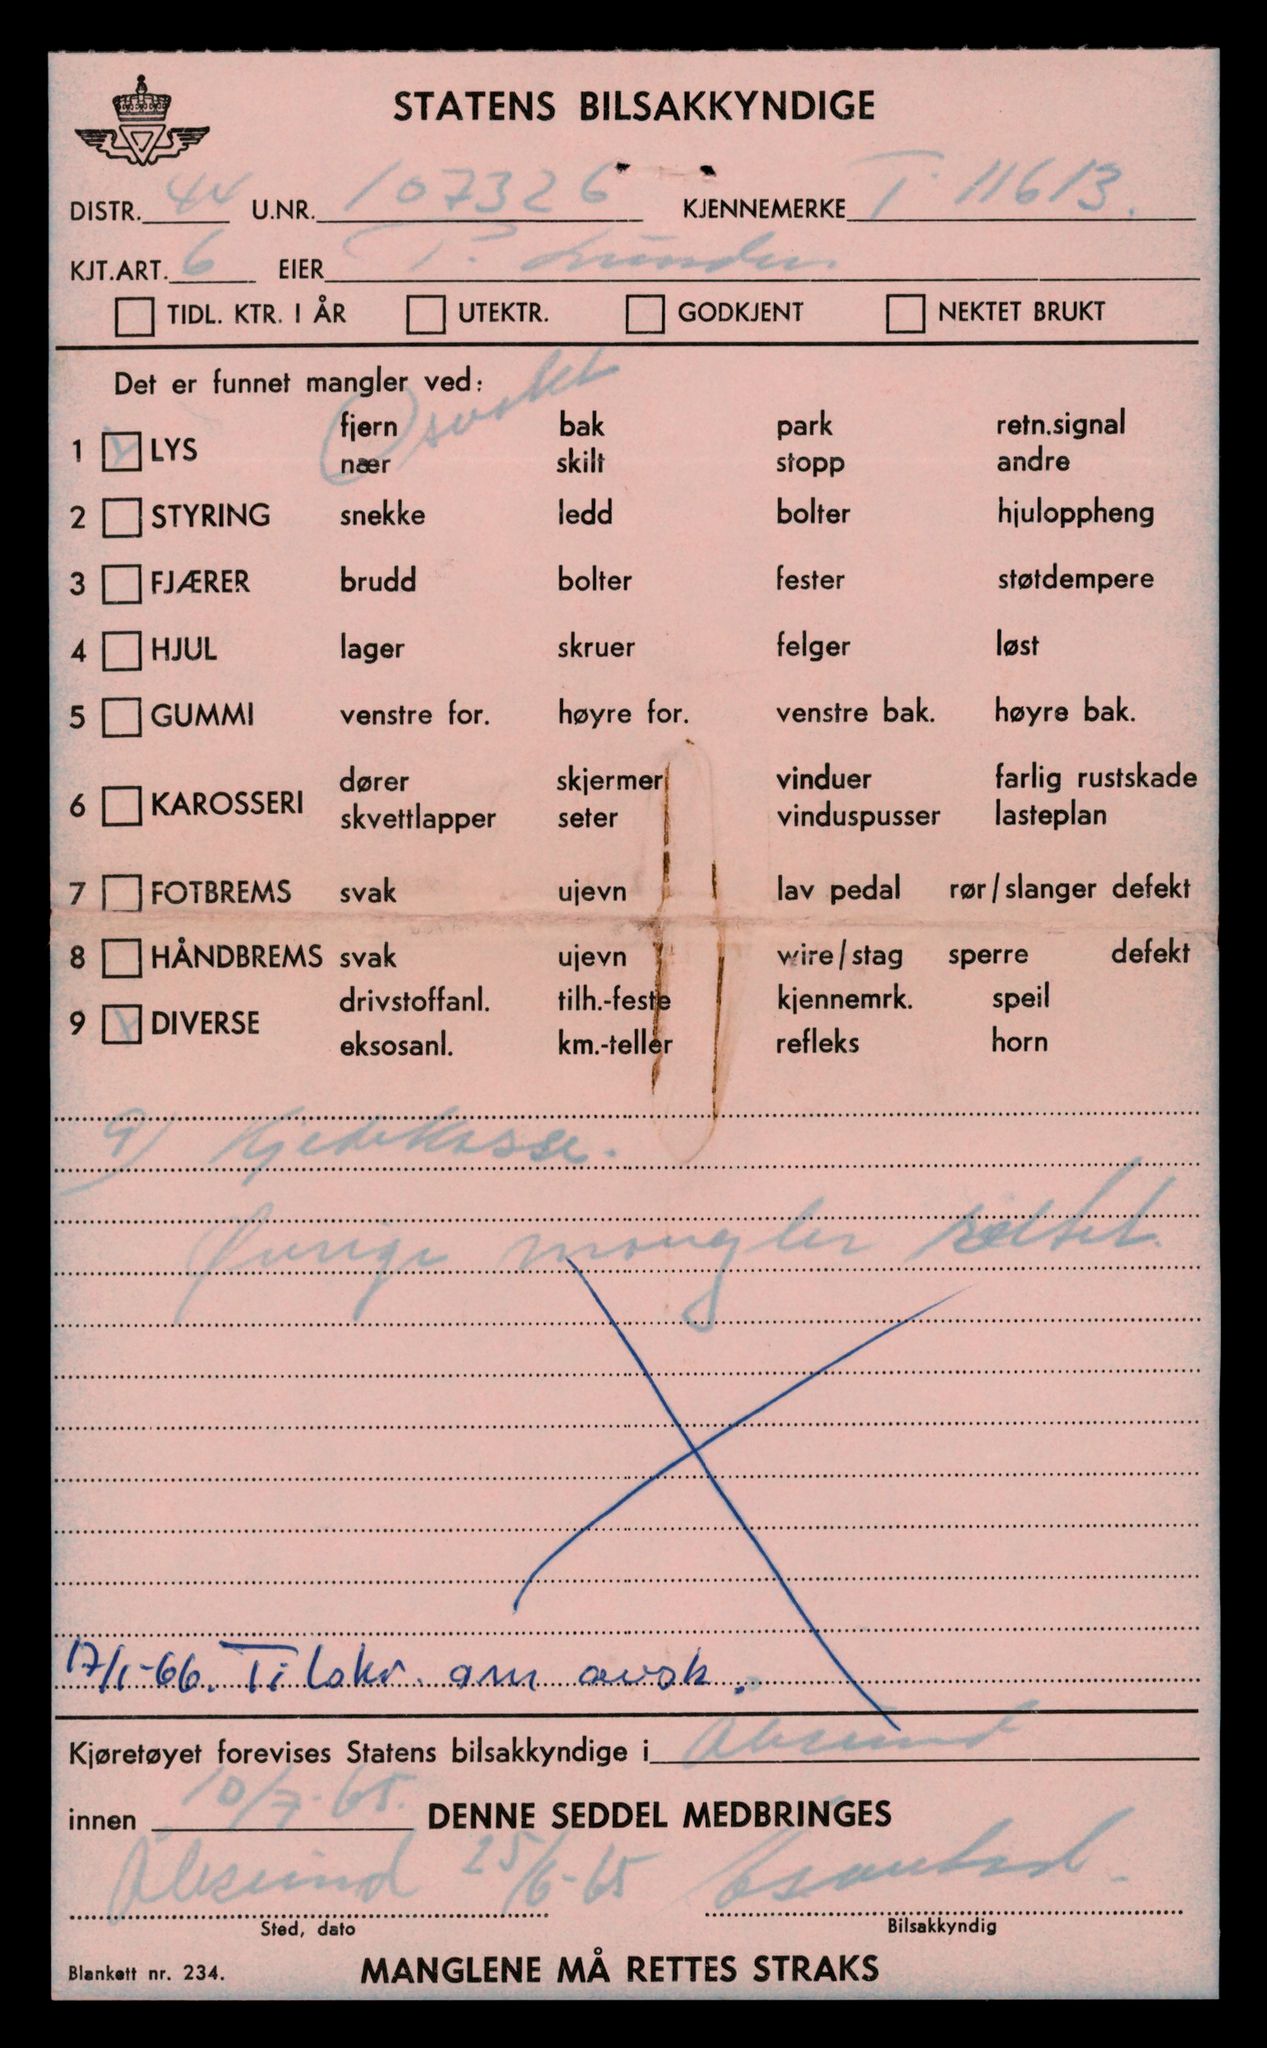 STATENS BILSAKKYNDIGE
DISTR. 44 U.NR. 107326 KJENNEMERKE T 11613.
KJT.ART. 6 EIER P.
TIDL. KTR. I ÅR UTEKTR. GODKJENT NEKTET BRUKT
Det er funnet mangler ved:
svakt
fjern bak park retn.signal
1 x LYS
nær skilt stopp andre
2 STYRING snekke ledd bolter hjuloppheng
3 FJÆRER brudd bolter fester støtdempere
4 HJUL lager skruer felger løst
5 GUMMI venstre for. høyre for. venstre bak. høyre bak.
dører skjermer vinduer farlig rustskade
6 KAROSSERI
skvettlapper seter vinduspusser lasteplan
7 FOTBREMS svak ujevn lav pedal rør/slanger defekt
8 HÅNDBREMS svak ujevn wire/stag sperre defekt
drivstoffanl. tilh.-feste kjennemrk. speil
9 x DIVERSE
eksosanl. km.-teller refleks horn
9) kjedekasse.
Øvrige mangler rettet.
17/1-66. Tilskr. om avsk.
Kjøretøyet forevises Statens bilsakkyndige i Ålesund
innen 10/7-65. DENNE SEDDEL MEDBRINGES
Ålesund 25/6-65
Sted, dato Bilsakkyndig
Blankett nr. 234. MANGLENE MÅ RETTES STRAKS